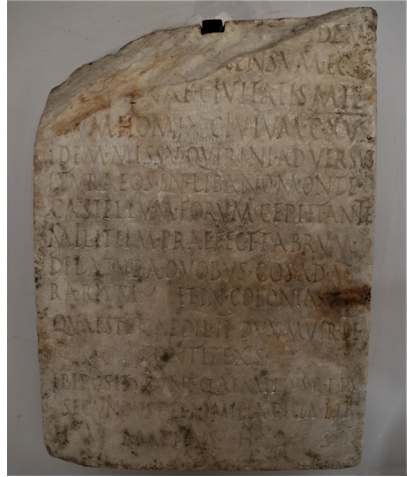 IDEM
CENSVM·EGI
ENAE·CIVITATIS·MIL
HOMIN·CIVIVM·CXVII
IDEM·MISSV·QVIRINI·ADVERSVS
ITVRAEOS·IN·LIBANO·MONTE
CASTELLVM·EORVM·CEPI·ET·ANTE
MILITIEM·PRAEFECT·FABRVM
DELATVS·A·DVOBVS·COS·AD·AE
RARIVM·ET·IN·COLONIA
QVAESTOR·AEDIL·II·DVVMVIR·II
PONTIFEXS
IBI·POSITI·SVNT·Q·AEMILIVS·Q·F
SECVNDVS·F·ET·AEMILIA·CHIA·LIB
H·AMPLIVS·H